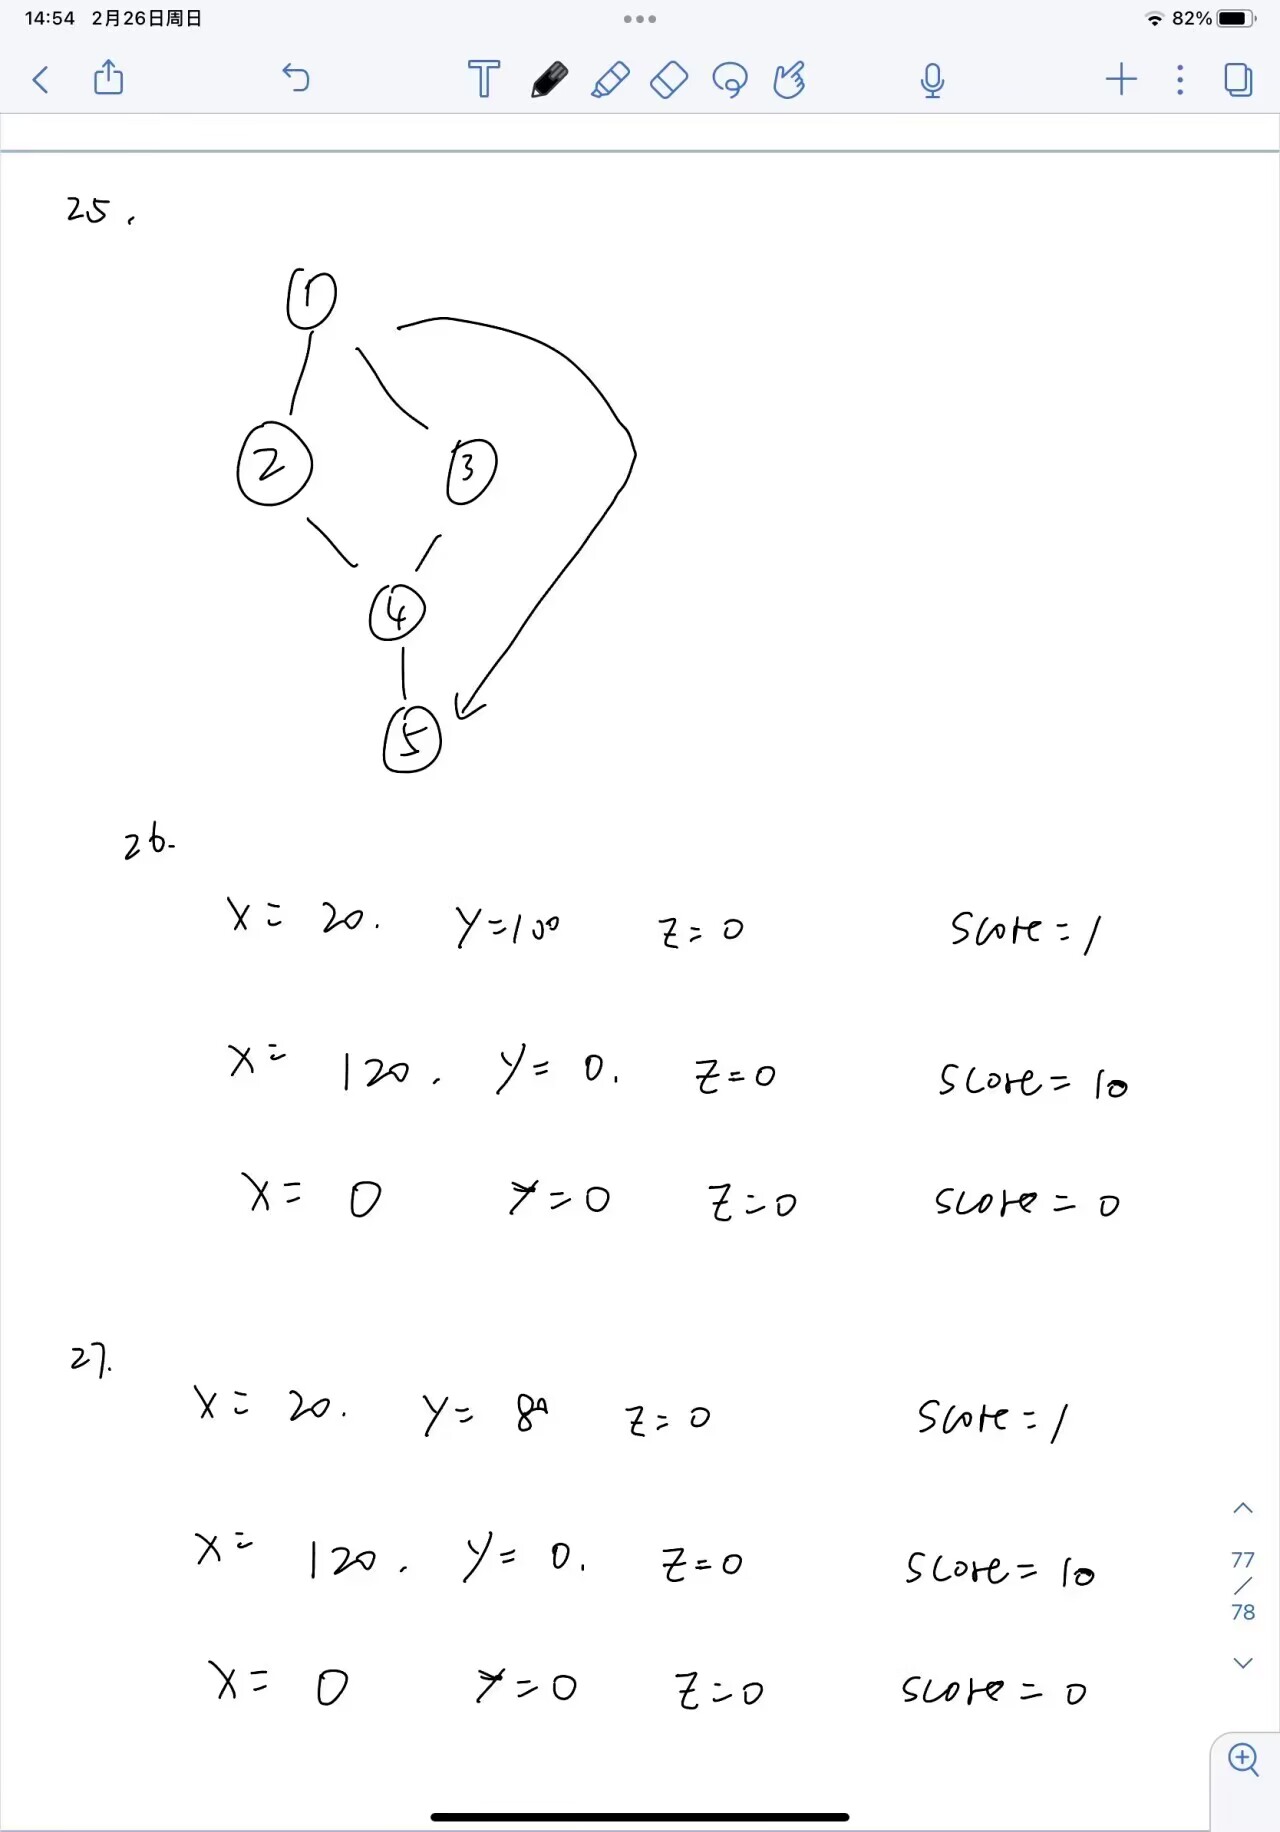 14:54 2月26日周日
82%
T
25.
1
2
3
4
5
26.
X= 20. Y=100 Z=0 Score=1
X= 120. Y=0. Z=0 Score=10
X= 0 Y=0 Z=0 Score=0
27.
X= 20. Y= 80 Z=0 Score=1
X= 120. Y=0. Z=0 Score=10
X= 0 Y=0 Z=0 Score=0
77
/
78